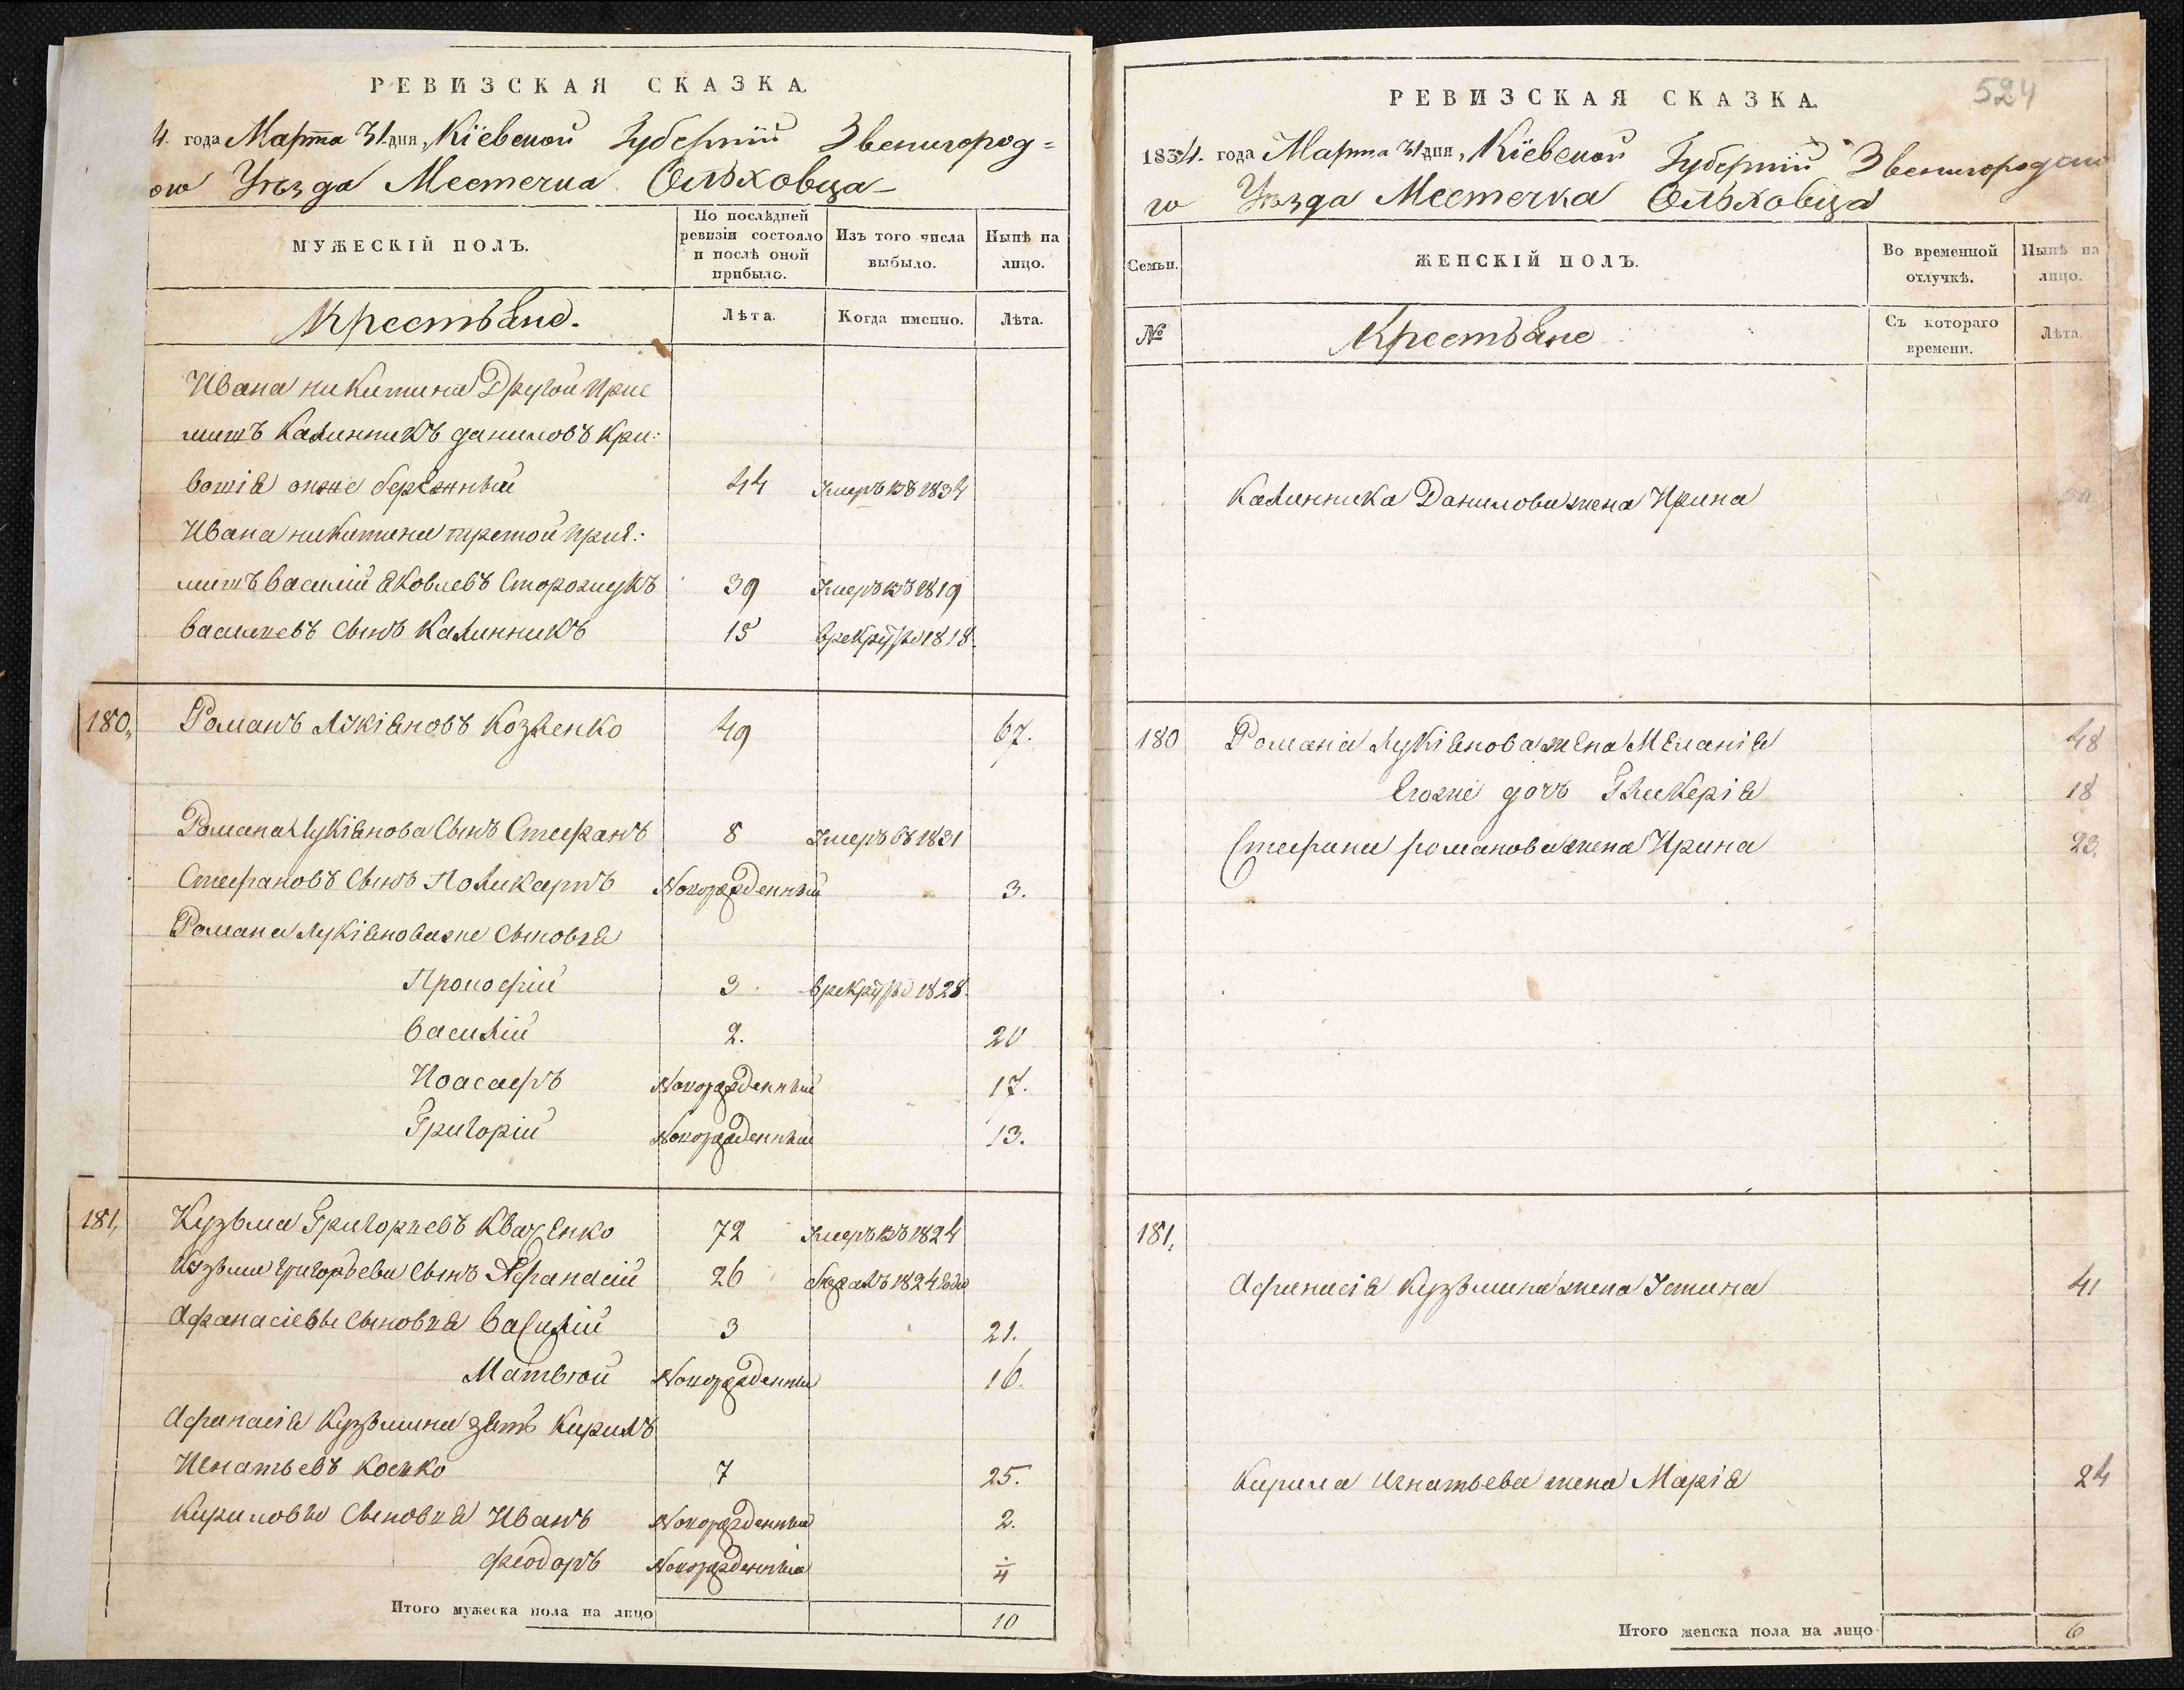 РЕВИЗСКАЯ СКАЗКА.
4. года Марта 31 дня, Кіевской Губерніи Звенигород=
ого Уѣзда Местечка Ольховца
МУЖЕСКІЙ ПОЛЪ.
По послѣдней ревизіи состояло и послѣ оной прибыло.
Изъ того числа выбыло.
Нынѣ на лицо.
Крестьяне.
Лѣта.
Когда именно.
Лѣта.
Ивана Никитина Другой прие
мишъ Калинникъ Даниловъ Кри:
вошія онже Бережный 44 Умеръ въ 1834
Ивана Никитина третой прие:
мишъ Василій Яковлевъ Сторожукъ 39 Умеръ въ 1819
Васильевъ Сынъ Калинникъ 15 в рекруты 1818.
180, Романъ Лукіяновъ Козленко 49 67.
Романа Лукіянова Сынъ Стефанъ 8 Умеръ въ 1831
Стефановъ Сынъ Поликарпъ Новорожденный 3.
Романа Лукіяноваже Сыновья
Прокофій 3 в рекруты 1828.
Василій 2. 20
Иоасафъ Новорожденный 17.
Григорій Новорожденный 13.
181, Кузьма Григорьевъ Кваченко 72 Умеръ въ 1824
Кузьмы Григорьева Сынъ Афанасій 26 бежалъ 1824 года
Афанасіевы Сыновья Василій 3 21.
Матвей Новорожденный 16.
Афанасія Кузьмина зять Кирилъ
Игнатьевъ 7 25.
Кириловы Сыновья Иванъ Новорожденный 2.
Феодоръ Новорожденный
Итого мужеска пола на лицо 10
524
РЕВИЗСКАЯ СКАЗКА.
1834. года Марта 31 дня, Кіевской Губерніи Звенигородска
го Уѣзда Местечка Ольховца
Семьи.
ЖЕНСКІЙ ПОЛЪ.
Во временной отлучкѣ.
Нынѣ на лицо.
№
Крестьяне
Съ котораго времени.
Лѣта.
Калинника Данилова жена Ирина
180 Романа Лукіянова жена Меланія 48
Егоже дочь Гликерія 18
Стефана Романова жена Ирина 23.
181,
Афанасія Кузьмина жена Устина 41
Кирила Игнатьева жена Марія 24
Итого женска пола на лицо 6